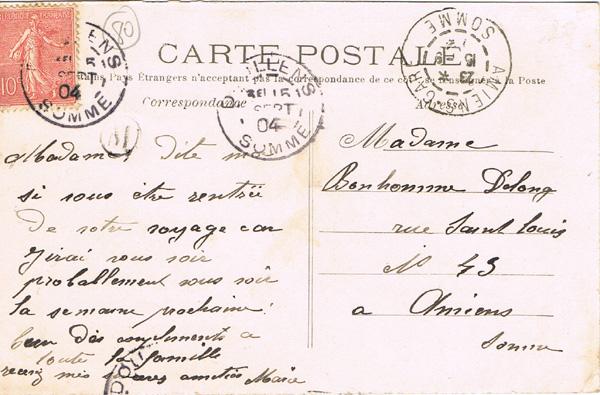 CARTE POSTALE
Pays Étrangers n'acceptent pas la correspondance de ce côté se renseigner à la Poste
Correspondance
Adresse
10
80
SEPT
04
SOMME
SEPT
04
SOMME
AMIENS GARE
SOMME
15
23
M
Madame, Dite moi
si vous être rentrée
De votre voyage car
J'irai vous voir
proballement vous voir
la semaine prochaine.
bien Dès compliments a
toute la famille
recevez mes amitiés Marie
DOU
Madame
Bonhomme Delong
rue Saint louis
No 43
a Amiens
Somme